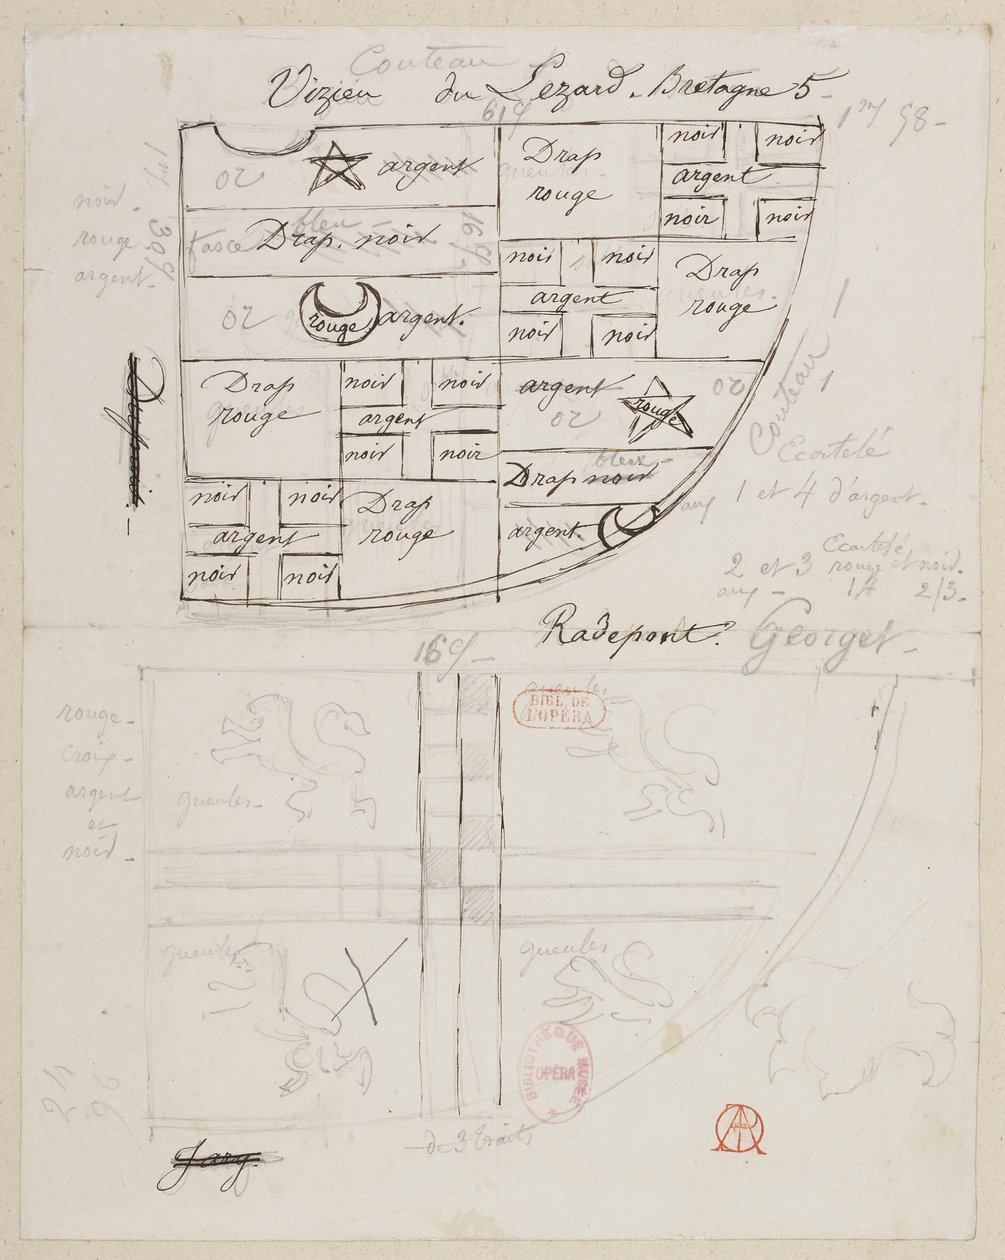 Couteau
Vizieu du Lezard. Bretagne 5-
noir.
rouge
argent.
or
argent
Drap
rouge
noir
noir
argent
noir
noir
fasce
bleu
Drap. noir
noir
noir
argent
noir
noir
Drap
rouge
or
rouge
argent.
Drap
rouge
noir
noir
argent
noir
noir
argent
or
rouge
or
bleu-
Drap noir
argent.
noir
noir
argent
noir
noir
Drap
rouge
Couteau
Ecartelé
1 et 4 d'argent.
Ecartelé
2 et 3 rouge et noir.
1/4 2/3-
Radepont.
Georges-
gueules
BIBL DE
L'OPÉRA
rouge-
croix-
argent
et
noir-
gueules-
gueules
gueules
BIBLIOTHÈQUE MUSÉE
OPÉRA
-de 3 traits